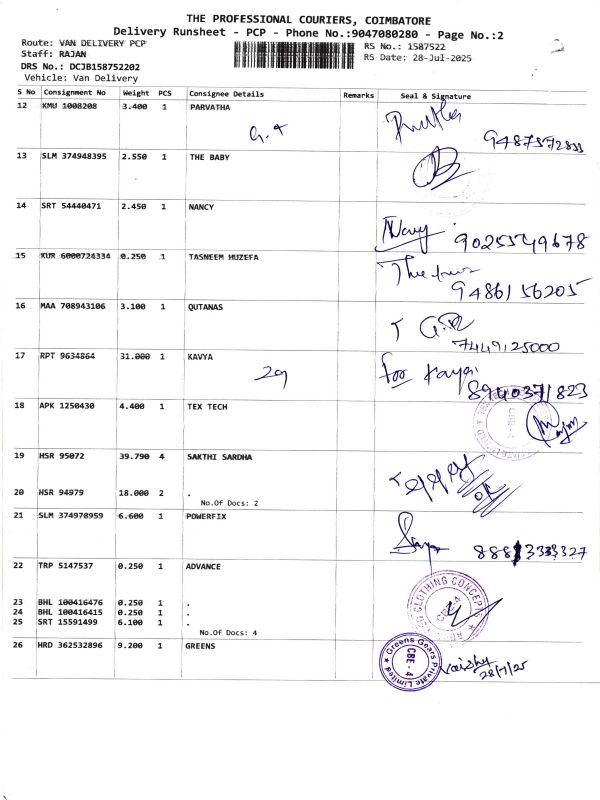 THE PROFESSIONAL COURIERS, COIMBATORE
Delivery Runsheet - PCP - Phone No.:9047080280 - Page No.:2
Route: VAN DELIVERY PCP
RS No.: 1587522
Staff: RAJAN
RS Date: 28-Jul-2025
DRS No.: DCJB158752202
Vehicle: Van Delivery
S No Consignment No Weight PCS Consignee Details Remarks Seal & Signature
12 KMU 1008208 3.400 1 PARVATHA
9487572833
13 SLM 374948395 2.550 1 THE BABY
14 SRT 54440471 2.450 1 NANCY
Nancy 9025549678
15 KUR 6000724334 0.250 1 TASNEEM HUZEFA
9486156205
16 MAA 708943106 3.100 1 QUTANAS
7449125000
17 RPT 9634864 31.000 1 KAVYA
29
for Kavya
8940371823
18 APK 1250430 4.400 1 TEX TECH
CBE-4
19 HSR 95072 39.790 4 SAKTHI SARDHA
20 HSR 94979 18.000 2 .
No.Of Docs: 2
21 SLM 374978959 6.600 1 POWERFIX
8881333327
22 TRP 5147537 0.250 1 ADVANCE
CLOTHING CONCEPTS
CBE-4
23 BHL 100416476 0.250 1 .
24 BHL 100416415 0.250 1 .
25 SRT 15591499 6.100 1 .
No.Of Docs: 4
26 HRD 362532896 9.200 1 GREENS
Greens Gears Private Limited
CBE - 4
28/7/25